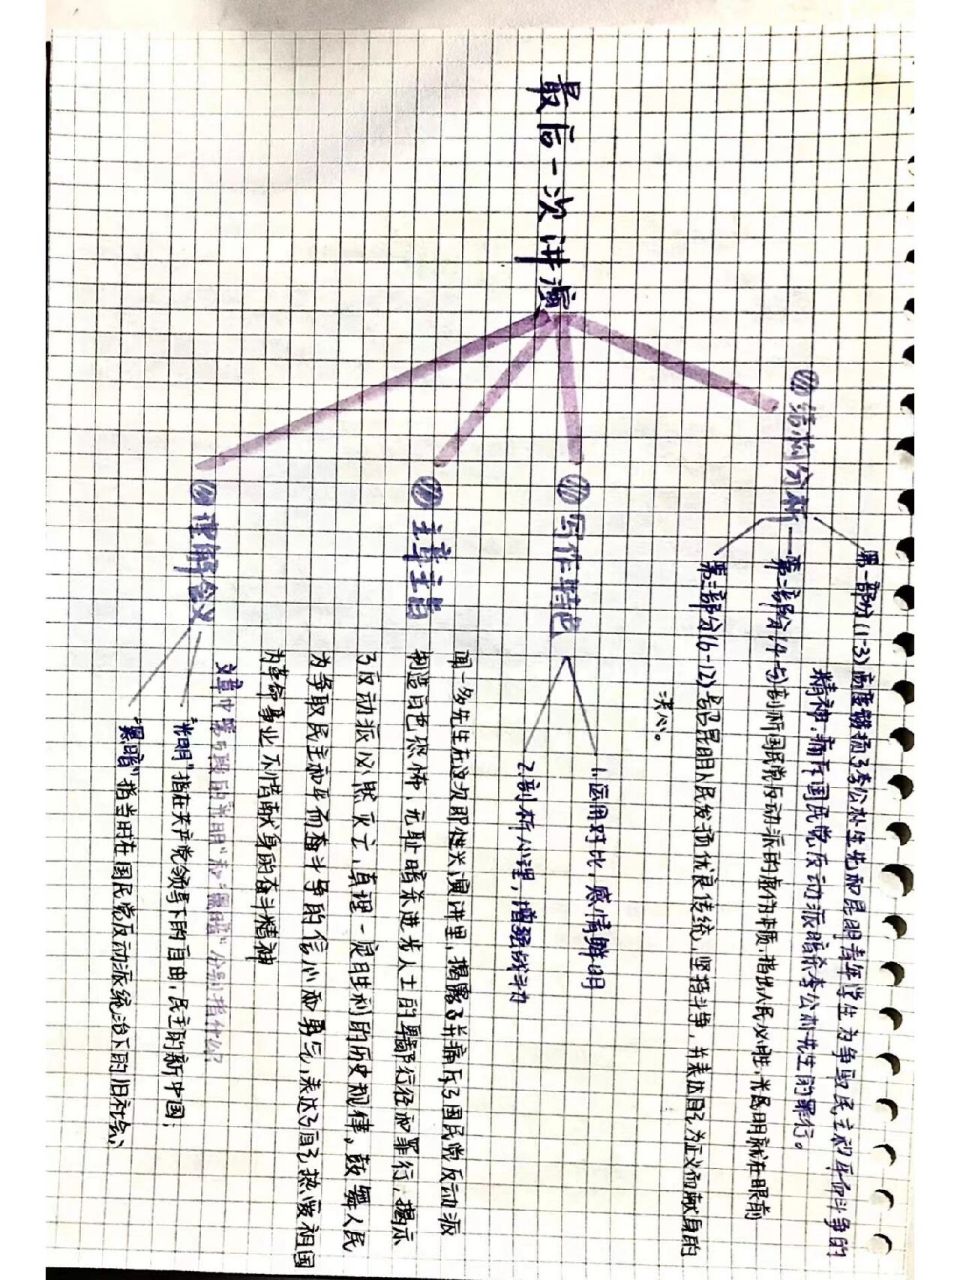 最后一次讲演
结构分析
第一部分(1-3)高度赞扬了李公朴先生和昆明青年学生为争取民主和平而斗争的
精神,痛斥国民党反动派暗杀李公朴先生的罪行。
第二部分(4-5)剖析国民党反动派的虚伪本质,指出人民必胜,光明就在眼前
第三部分(6-12)号召昆明人民发扬优良传统,坚持斗争,并表达自己为正义而献身的
决心。
写作特色
1.运用对比,感情鲜明
2.剖析心理,增强战斗力
文章主旨
闻一多先生在这次即性兴演讲里,揭露了并痛斥了国民党反动派
制造白色恐怖,无耻暗杀进步人士的罪行径和罪行,揭示
了反动派必然灭亡,真理一定胜利的历史规律。鼓舞人民
为争取民主和平而奋斗争的信心和勇气,表达了自己热爱祖国
为革命事业不惜献身的奋斗精神
理解含义
文章中第5段的"光明"和"黑暗"分别指什么?
"光明"指在共产党领导下的自由,民主的新中国;
"黑暗"指当时在国民党反动派统治下的旧社会